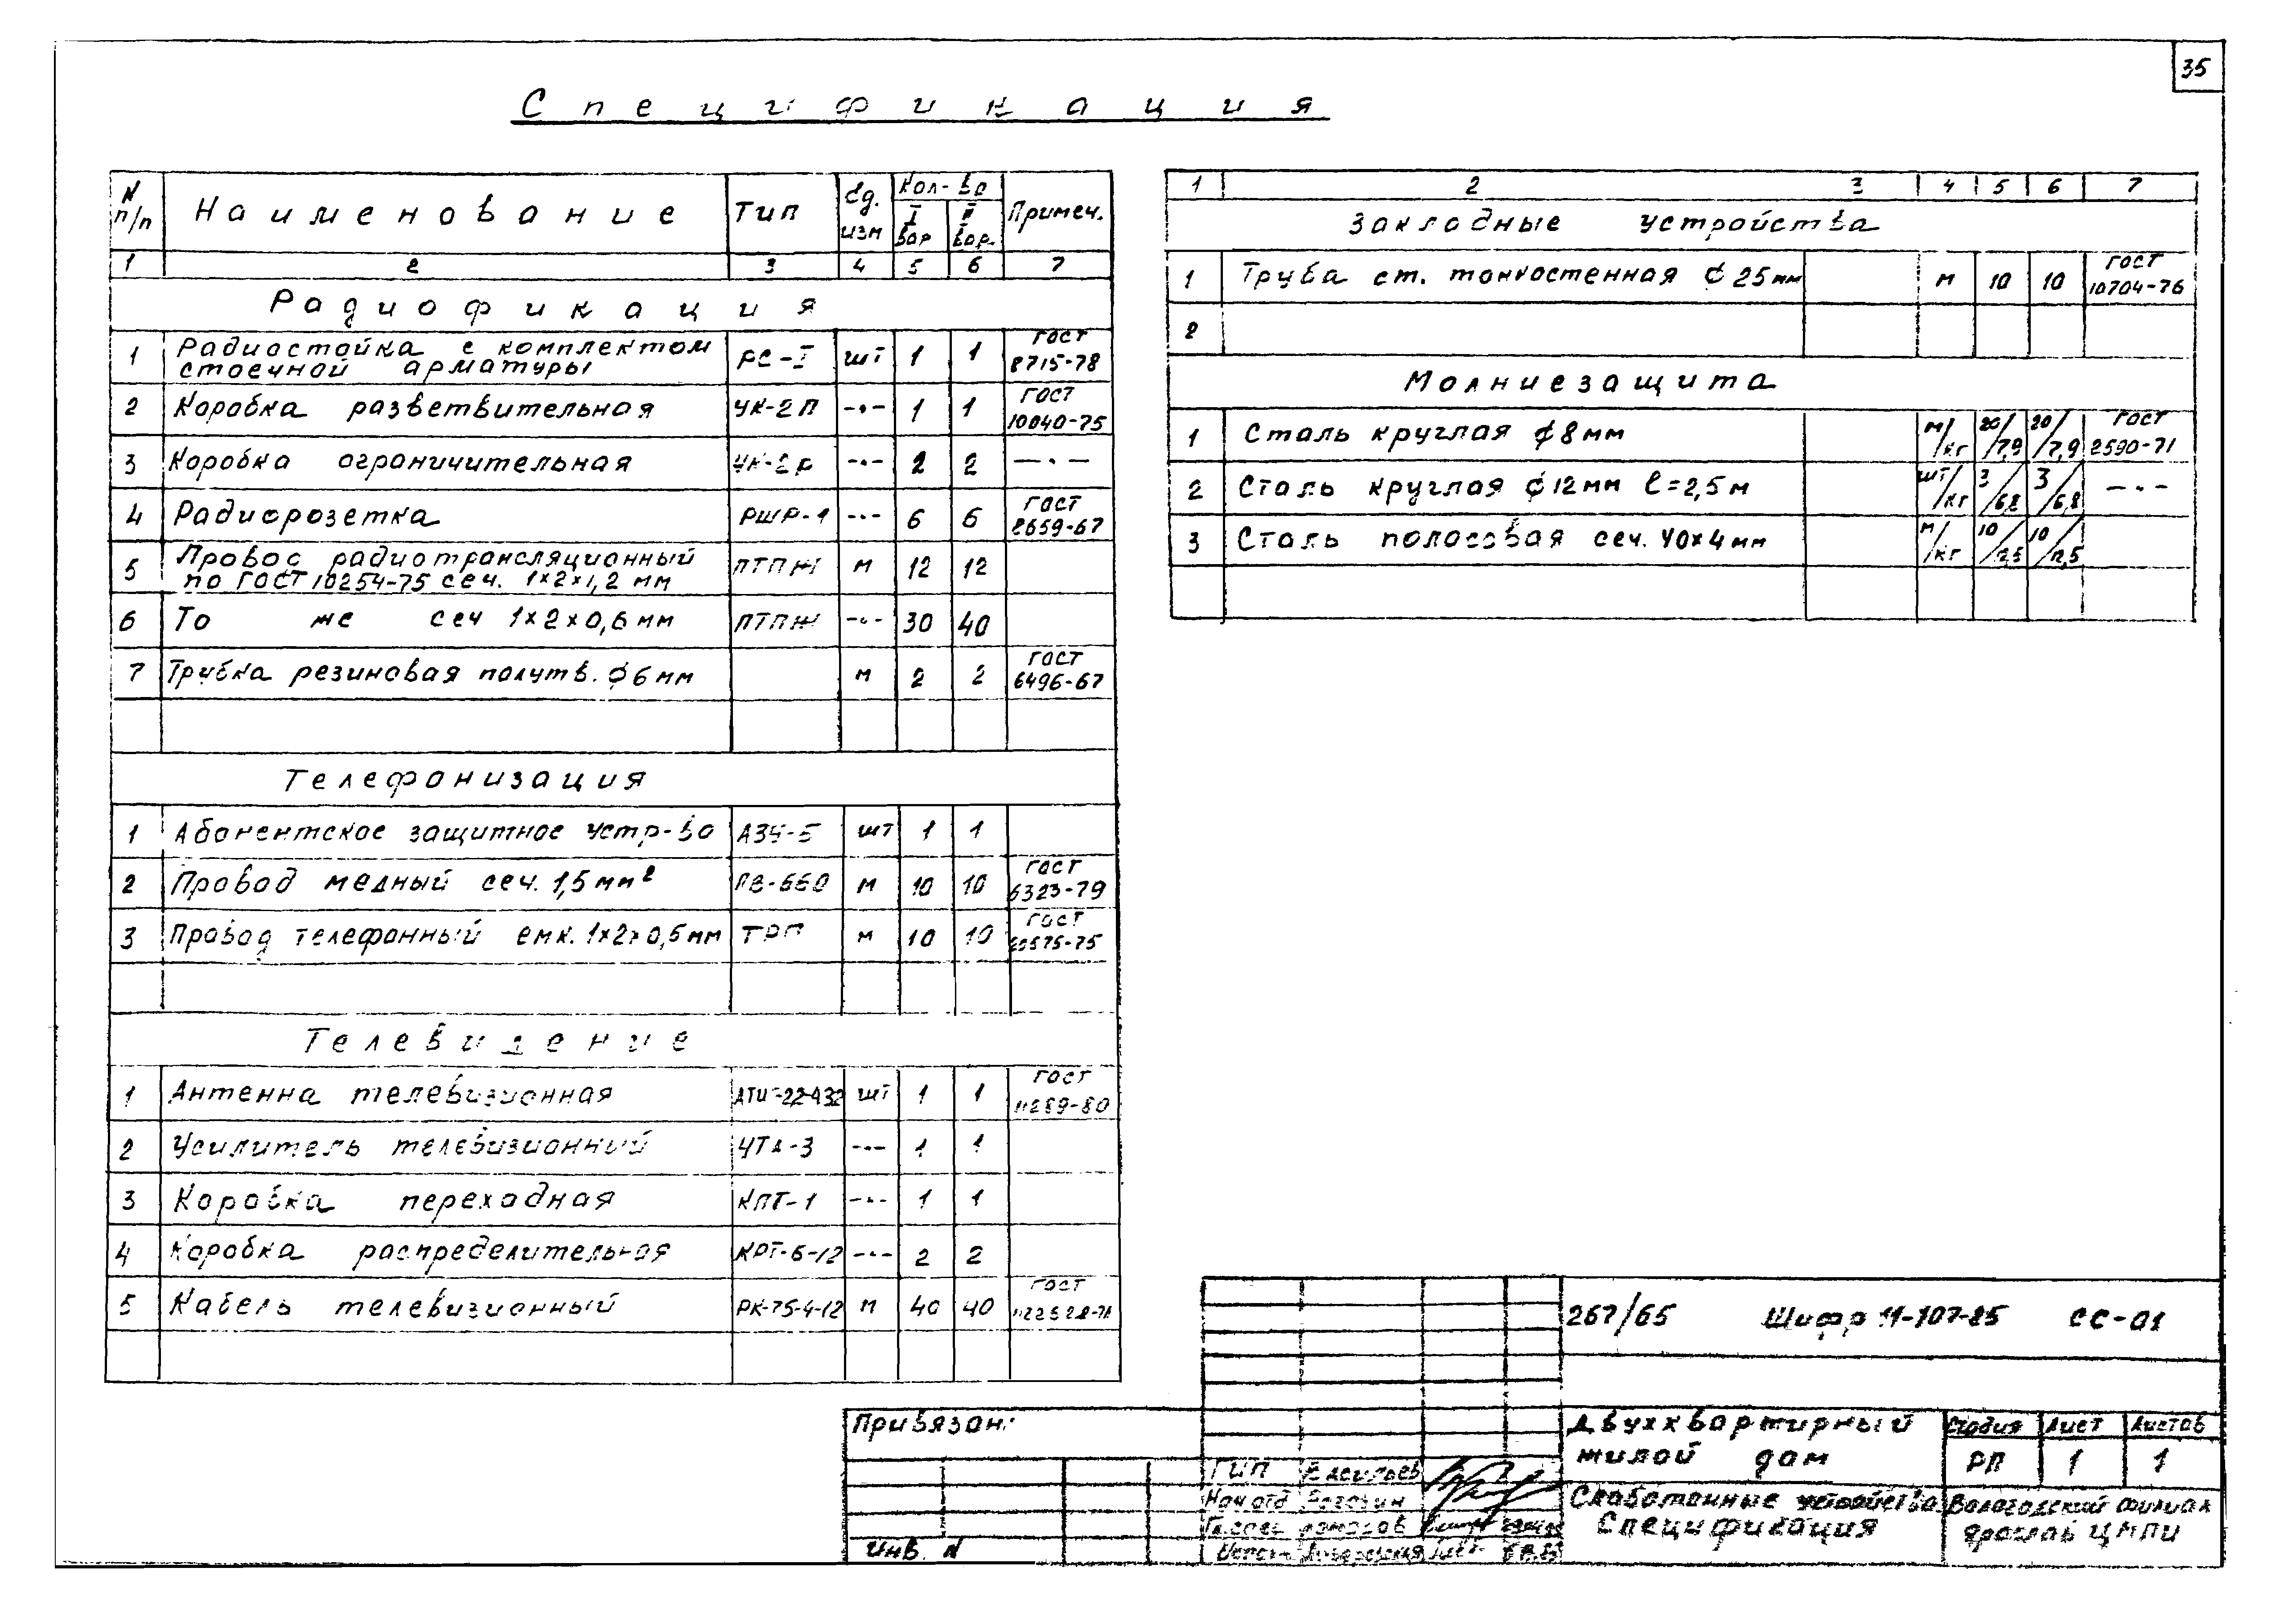 35
Спецификация
N п/п Наименование Тип Ед. изм Кол-во Примеч.
I вар II вар.
1 2 3 4 5 6 7
Радиофикация
1 Радиостойка с комплектом стоечной арматуры РС-I шт 1 1 ГОСТ 8715-78
2 Коробка разветвительная УК-2П -•- 1 1 ГОСТ 10040-75
3 Коробка ограничительная УК-2Р -•- 2 2 -•-
4 Радиорозетка РШР-1 -•- 6 6 ГОСТ 8659-67
5 Провод радиотрансляционный по ГОСТ 10254-75 сеч. 1×2×1,2 мм ПТПЖ м 12 12
6 То же сеч 1×2×0,6 мм ПТПЖ -•- 30 40
7 Трубка резиновая полутв. ф6 мм м 2 2 ГОСТ 6496-67
Телефонизация
1 Абонентское защитное устр-во АЗУ-5 шт 1 1
2 Провод медный сеч. 1,5 мм² ПВ-660 м 10 10 ГОСТ 6323-79
3 Провод телефонный емк. 1×2×0,5 мм ТРП м 10 10 ГОСТ 20575-75
Телевидение
1 Антенна телевизионная шт 1 1 ГОСТ 11289-80
2 Усилитель телевизионный -•- 1 1
3 Коробка переходная КПТ-1 -•- 1 1
4 Коробка распределительная КРТ-6-12 -•- 2 2
5 Кабель телевизионный РК-75-4-12 м 40 40 ГОСТ
1 2 3 4 5 6 7
Закладные устройства
1 Труба ст. тонкостенная ф 25 мм м 10 10 ГОСТ 10704-76
2
Молниезащита
1 Сталь круглая ф8 мм м/кг 20/7,9 20/7,9 ГОСТ 2590-71
2 Сталь круглая ф12 мм l=2,5 м шт/кг 3/6,8 3/6,8 -•-
3 Сталь полосовая сеч. 40×4 мм м/кг 10/12,5 10/12,5
267/65 Шифр 11-107-85 СС-01
Привязан:
Инв. N
ГИП Васильев
Нач отд Рогозин
Гл. спец
Двухквартирный жилой дом
Стадия Лист Листов
РП 1 1
Слаботочные устройства
Спецификация
Вологодский филиал
ЦНТИ